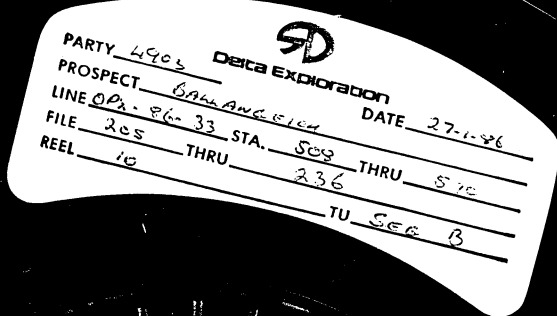 Delta Exploration
PARTY 4903
PROSPECT BALLANGEICH DATE 27-1-86
LINE OP2-86-33 STA. 508 THRU
FILE 205 THRU 236
REEL 10 TU SEG B